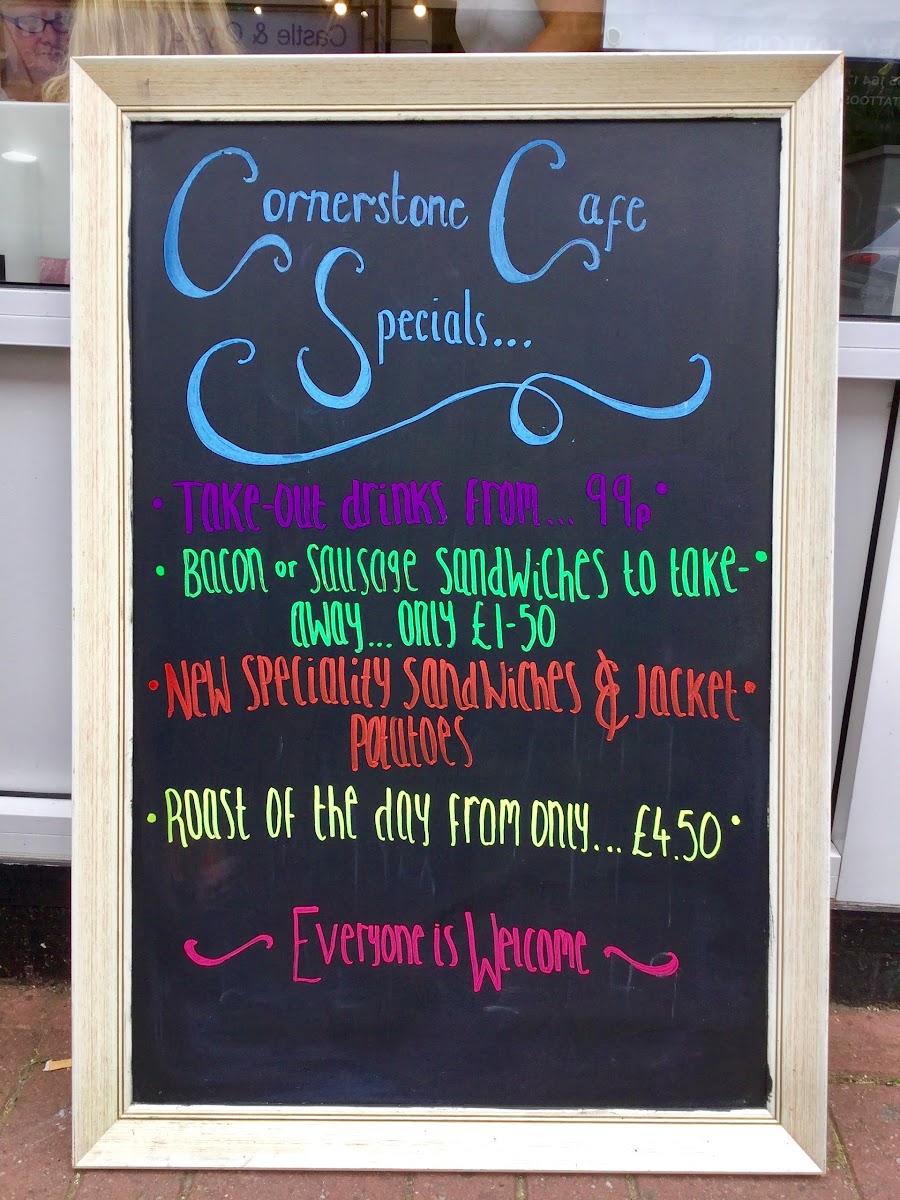 Castle & Crys
Cornerstone Cafe
Specials...
• Take-out drinks from... 99p •
• Bacon or sausage sandwiches to take- •
away... only £1-50
• New speciality sandwiches & jacket •
potatoes
• Roast of the day from only... £4.50 •
~ Everyone is Welcome ~